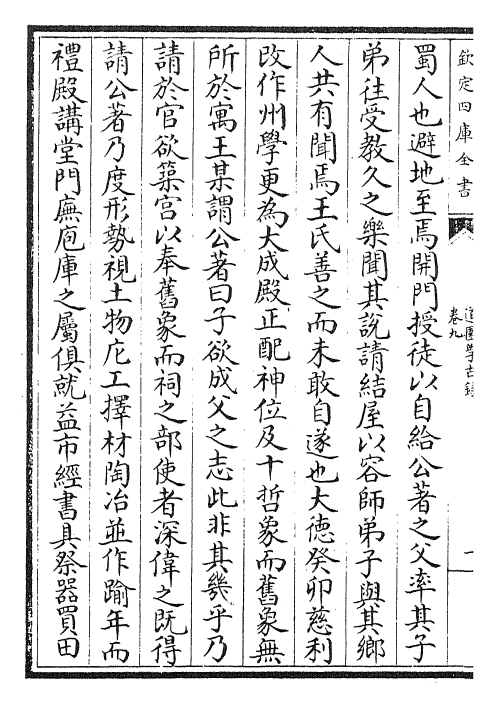 欽定四庫全書
道園學古錄
卷九
一
蜀人也避地至焉開門授徒以自給公著之父率其子
弟往受教久之樂聞其說請結屋以容師弟子與其鄉
人共有聞焉王氏善之而未敢自遂也大徳癸卯慈利
改作州學更為大成殿正配神位及十哲象而舊象無
所於寓王某謂公著曰子欲成父之志此非其幾乎乃
請於官欲築宫以奉舊象而祠之部使者深偉之既得
請公著乃度形勢視土物庀工擇材陶冶並作踰年而
禮殿講堂門廡庖庫之屬俱就益市經書具祭器買田